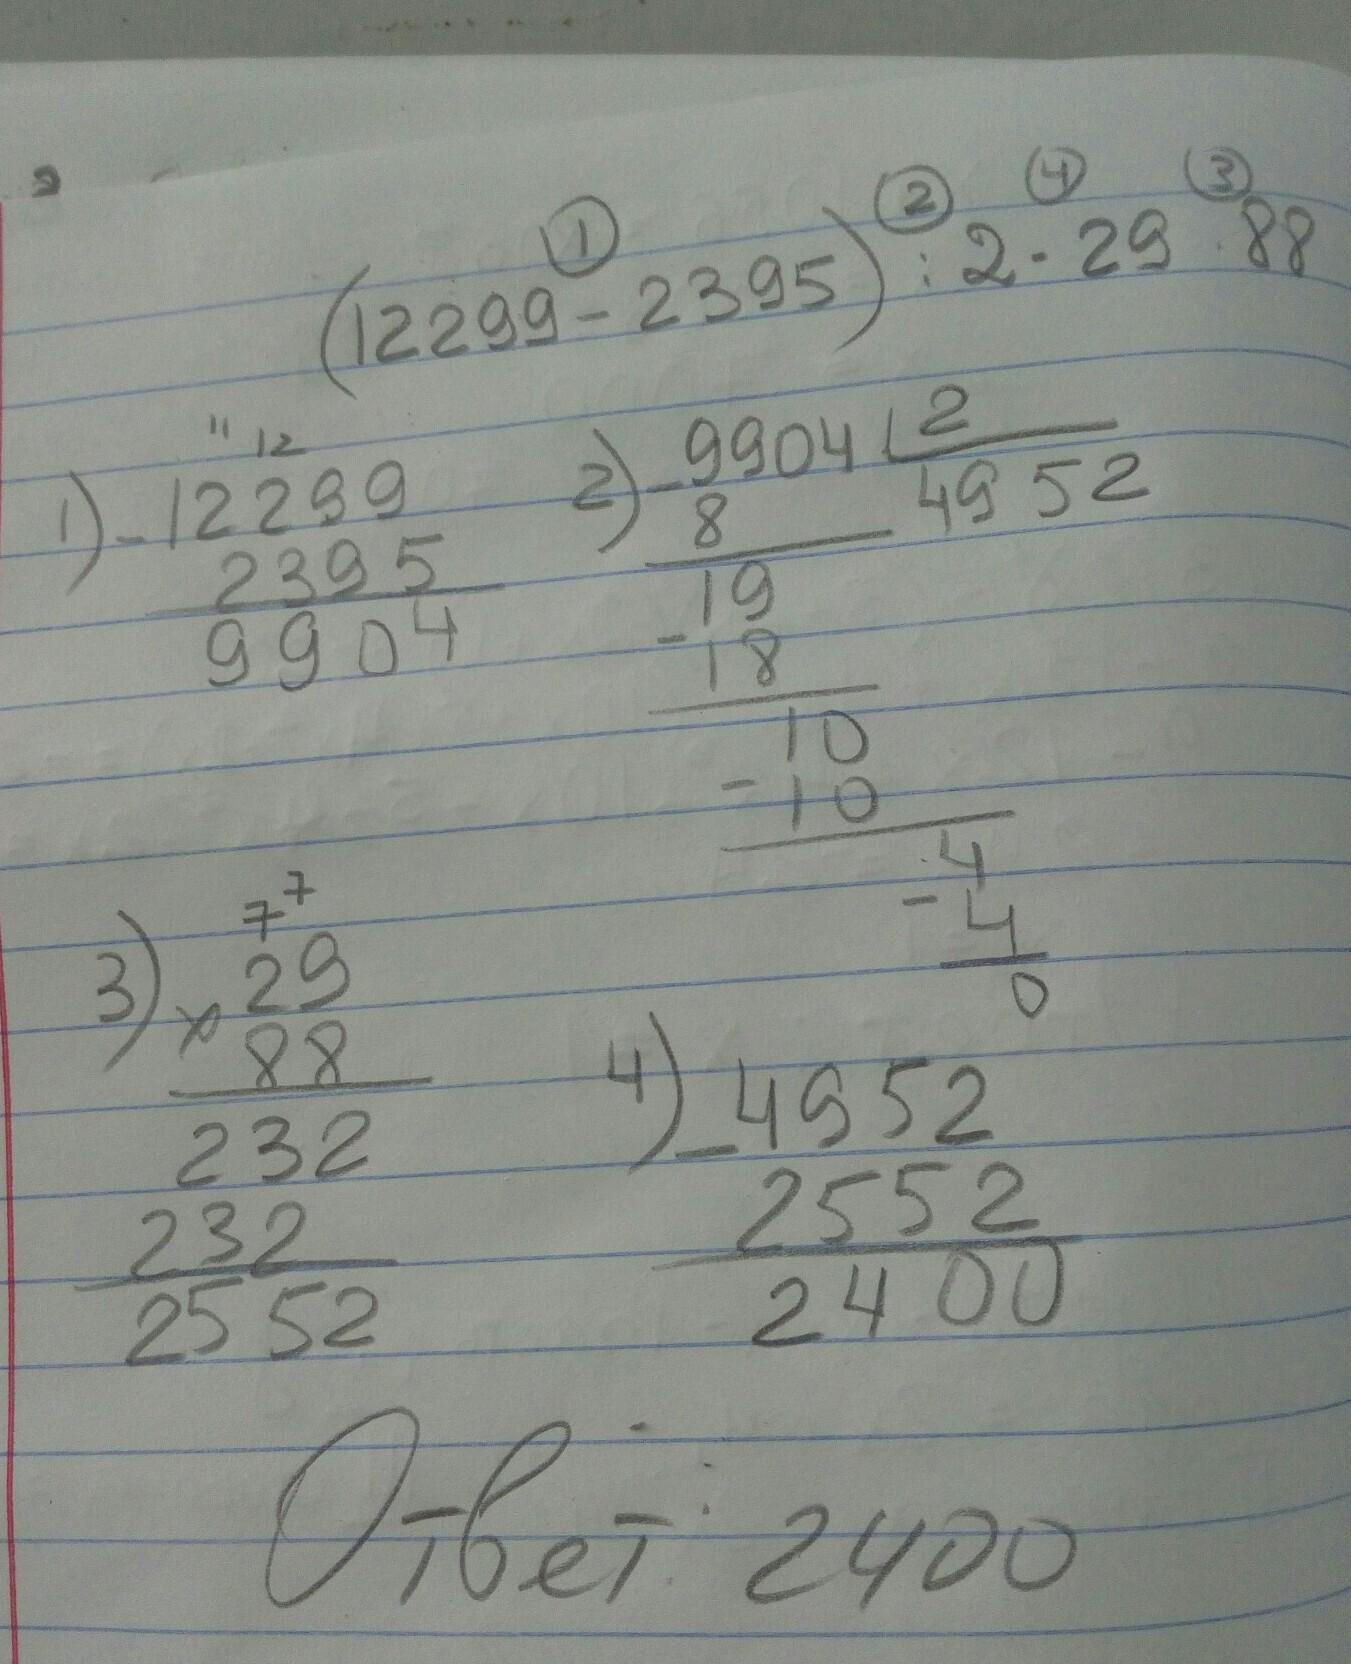 ① ② ④ ③
(12299-2395):2-29·88
11 12
1) -12299
2395
9904
2) -9904 2
8 4952
19
-18
10
-10
4
-4
0
7 7
3) x 29
88
232
232
2552
4) -4952
2552
2400
Ответ: 2400